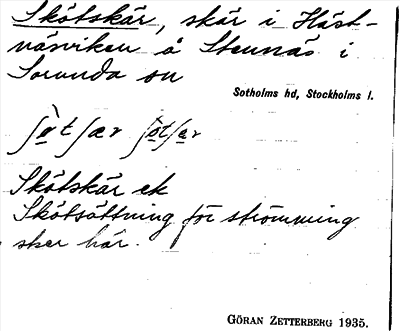 Skötskär, skär i Häst-
näsviken å Stennäs i
Sorunda sn
Sotholms hd, Stockholms l.
ʃø̀tʃær ʃø̀tʃer
Skötskär ek
Skötsättning för strömming
sker här.
GÖRAN ZETTERBERG 1935.